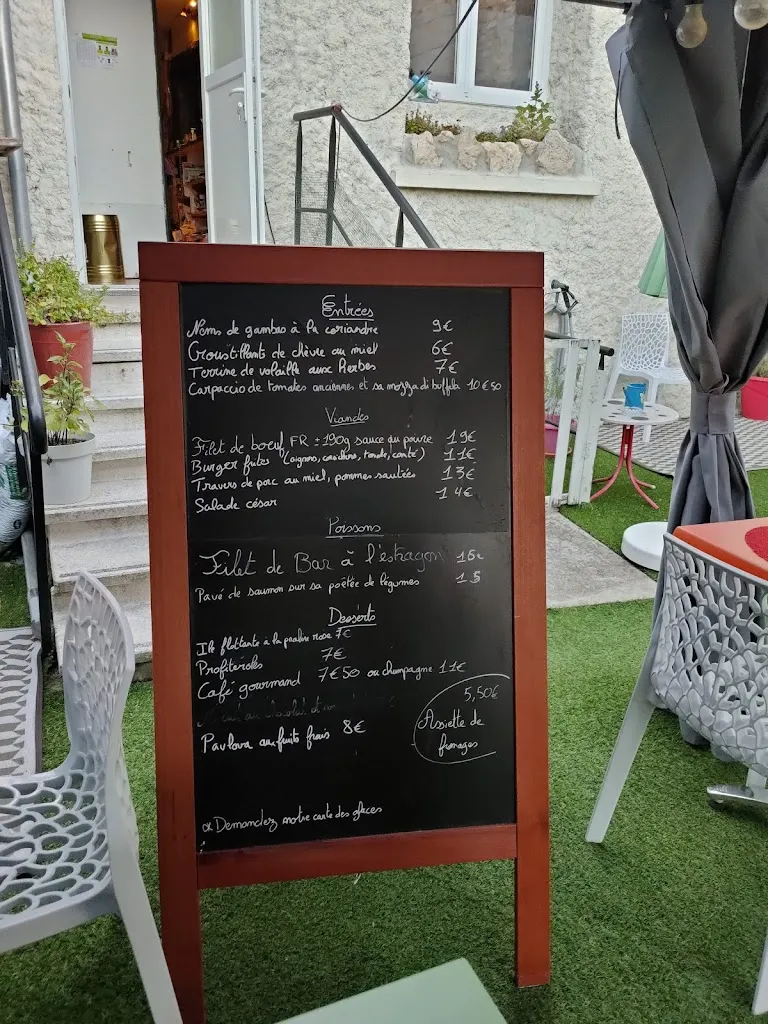 Entrées
Nems de gambas à la coriandre 9€
Croustillants de chèvre au miel 6€
Terrine de volaille aux Herbes 7€
Carpaccio de tomates anciennes et sa mozza di buffala 10€50
Viandes
Filet de boeuf FR ± 190g sauce au poivre 19€
Burger frites (oignons, cornichons, tomate, cantal) 11€
Travers de porc au miel, pommes sautées 13€
Salade césar 14€
Poissons
Filet de Bar à l'estragon 16€
Pavé de saumon sur sa poêlée de légumes 15
Desserts
Ile flottante à la praline rose 7€
Profiteroles 7€
Café gourmand 7€50 ou champagne 11€
5,50€
Assiette de
fromages
Pavlova aux fruits frais 8€
Demandez notre carte des glaces